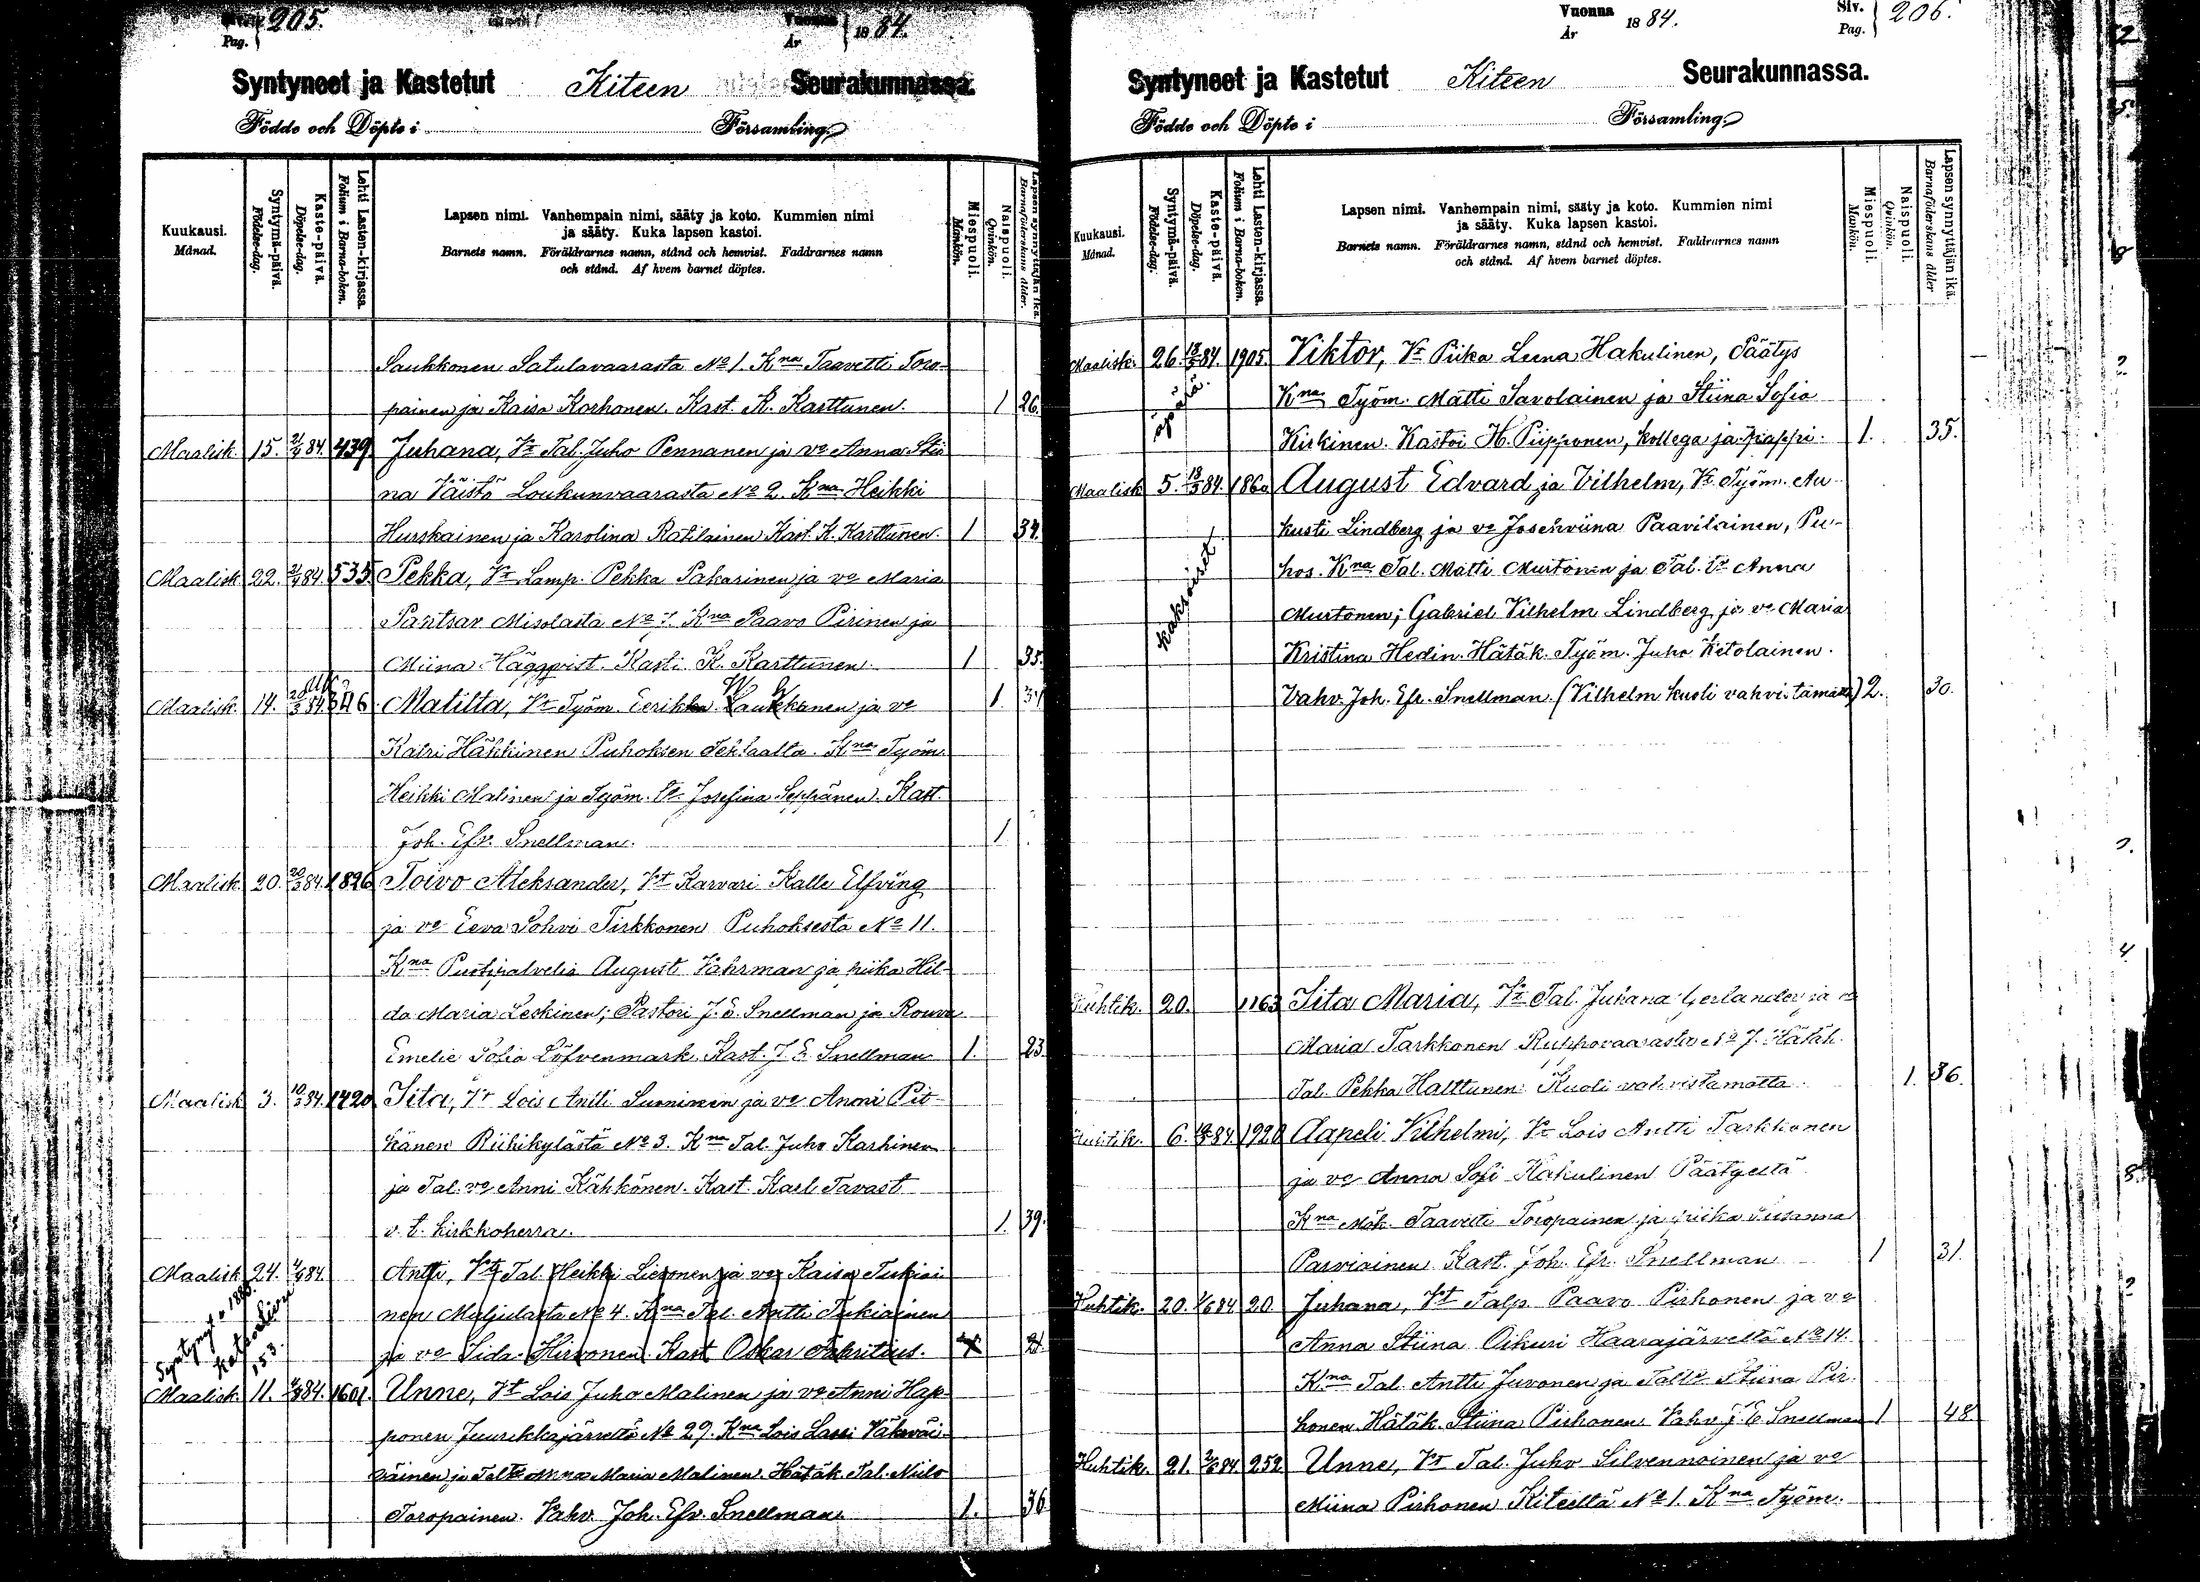 Pag. 205.
Vuonna
År 1884.
Syntyneet ja Kastetut Kiteen Seurakunnassa.
Födde och Döpte i Församling.
Kuukausi.
Månad.
Syntymä-päivä.
Födelse-dag.
Kaste-päivä.
Döpelse-dag.
Lehti Lasten-kirjassa.
Folium i Barna-boken.
Lapsen nimi. Vanhempain nimi, sääty ja koto. Kummien nimi
ja sääty. Kuka lapsen kastoi.
Barnets namn. Föräldrarnes namn, stånd och hemvist. Faddrarnes namn
och stånd. Af hvem barnet döptes.
Miespuoli.
Mankön.
Naispuoli.
Qvinkön.
Lapsen synnyttäjän ikä.
Barnaföderskans ålder.
Saukkonen Satulavaarasta No 1. Kna Taavetti Toro-
painen ja Kaisa Korhonen. Kast. K. Karttunen. 1 26.
Maalisk. 15. 84. 439 Juhana, Vt Tal. Juho Pennanen ja vo Anna Stii
na Väistö Loukunvaarasta No 2. Kna Heikki
Hurskainen ja Karolina Ratilainen Kast. K. Karttunen. 1 34.
Maalisk. 22. 84. 535 Pekka, Vt Lamp. Pekka Pakarinen ja vo Maria
Pantsar Misolasta No 7. Kna Paavo Pirinen ja
Miina Häggqvist. Kasti K. Karttunen. 1 35.
Maalisk. 14. 84. 346 Matilta, Vt Työm. Eerikka Laukkanen ja vo 1. 34
Katri Häkkinen Puhoksen Tehtaalta. Kna Työm.
Heikki Malinen ja Työm. Vo Josefina Seppänen. Kast.
Joh. Efr. Snellman. 1
Maalisk. 20. 20/3 84. 1826 Toivo Aleksander, Vt Karvari Kalle Elfving
ja vo Eeva Sohvi Tirkkonen Puhoksesta No 11.
Kna Puotipalvelia August Fahrman ja piika Hil-
da Maria Leskinen; Pastori J. E. Snellman ja Rouva
Emelie Sofia Löfvenmark. Kast. J. E. Snellman 1. 23
Maalisk. 3. 84. 1420 Iita, Vt Lois Antti Surninen ja vo Anni Pit-
känen Riihikylästä No 3. Kna Tal. Juho Karhinen
ja Tal. vo Anni Kähkönen. Kast. Karl Tavast
v. t. kirkkoherra. 1. 39.
Maalisk. 24. 84. Antti, Vt Tal. Heikki Lieronen ja vo Kaisa Tukiai
nen Muljulasta No 4. Kna Tal. Antti Tukiainen
ja vo Iida Hirvonen. Kast Oskar Fabritius.
Syntynyt 1883. katso sivu 153.
Maalisk. 11. 84. 1601. Unne, Vt Lois Juho Malinen ja vo Anni Hap-
ponen Juurikkajärveltä No 29. Kna Lois Lassi Vähäväi-
Anna Maria Malinen. Hätäk. Tal. Niilo
Toropainen. Vahv. Joh. Efr. Snellman. 1. 36
Vuonna
År 1884.
Siv.
Pag. 206.
Syntyneet ja Kastetut Kiteen Seurakunnassa.
Födde och Döpte i Församling.
Kuukausi.
Månad.
Syntymä-päivä.
Födelse-dag.
Kaste-päivä.
Döpelse-dag.
Lehti Lasten-kirjassa.
Folium i Barna-boken.
Lapsen nimi. Vanhempain nimi, sääty ja koto. Kummien nimi
ja sääty. Kuka lapsen kastoi.
Barnets namn. Föräldrarnes namn, stånd och hemvist. Faddrarnes namn
och stånd. Af hvem barnet döptes.
Miespuoli.
Mankön.
Naispuoli.
Qvinkön.
Lapsen synnyttäjän ikä.
Barnaföderskans ålder
Maalisk. 26. 84. 1905. Viktor, Vr Piika Leena Hakulinen, Päätys
Kna Työm. Matti Savolainen ja Stiina Sofia
Kirkinen. Kastoi H. Piipponen, kollega ja pappi. 1. 35.
Maalisk 5. 84. 1860 August Edvard ja Vilhelm, Vt Työm. Au-
kusti Lindberg ja vo Josehviina Paavilainen, Pu-
hos. Kna Tal. Matti Murtonen ja Tal. vo Anna
kaksoiset
Murtonen; Gabriel Vilhelm Lindberg ja vo Maria
Kristina Hedin. Hätäk. Työm. Juho Ketolainen.
Vahv. Joh. Efr. Snellman. (Vilhelm kuoli vahvistamatta) 2. 30.
Huhtik. 20. 1163 Iita Maria, Vt Tal. Juhana Gerlander ja vo
Maria Tarkkonen Ruppovaarasta No 7. Hätäk.
Tal. Pekka Halttunen. Kuoli vahvistamatta. 1. 36.
Huhtik. 6. 84 1920 Aapeli Vilhelmi, Vt Lois Antti Tarkkonen
ja vo Anna Sofi Hakulinen Päätyeltä
Kna Mäk. Taavetti Toropainen ja piika Susanna
Parviainen Kast. Joh. Efr. Snellman 1 31.
Huhtik. 20. 84 20. Juhana, Vt Talp. Paavo Pirhonen ja vo
Anna Stiina Oikuri Haarajärveltä No 14.
Kna Tal. Antti Juvonen ja Stiina Pir-
honen. Hätäk. Stiina Pirhonen Vahv. J. E. Snellman 1 48
Huhtik. 21. 84. 252. Unne, Vt Tal. Juho Silvennoinen ja vo
Miina Pirhonen Kiteeltä No 1. Kna Työm.